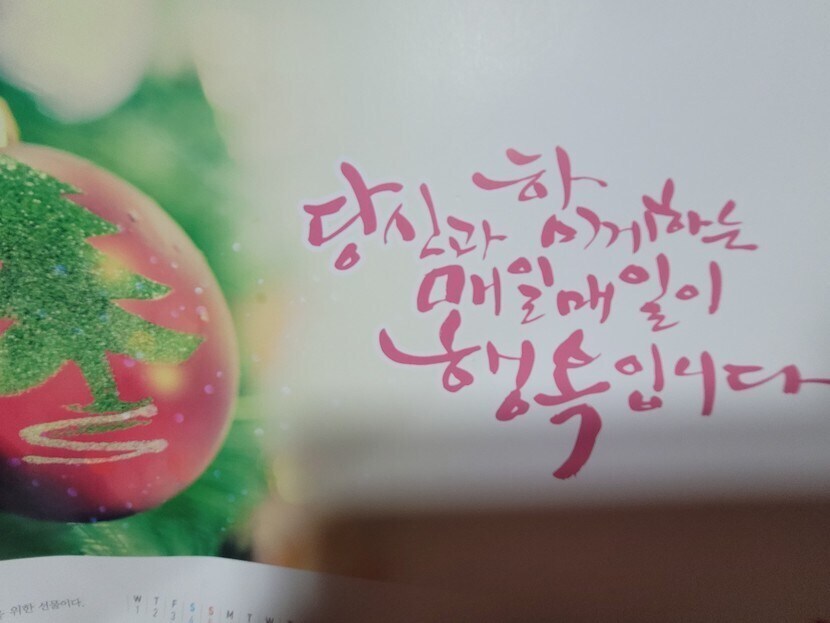 당신과 함께하는
매일매일이
행복입니다
위한 선물이다.
W T F S S M T W
1 2 3 4 5